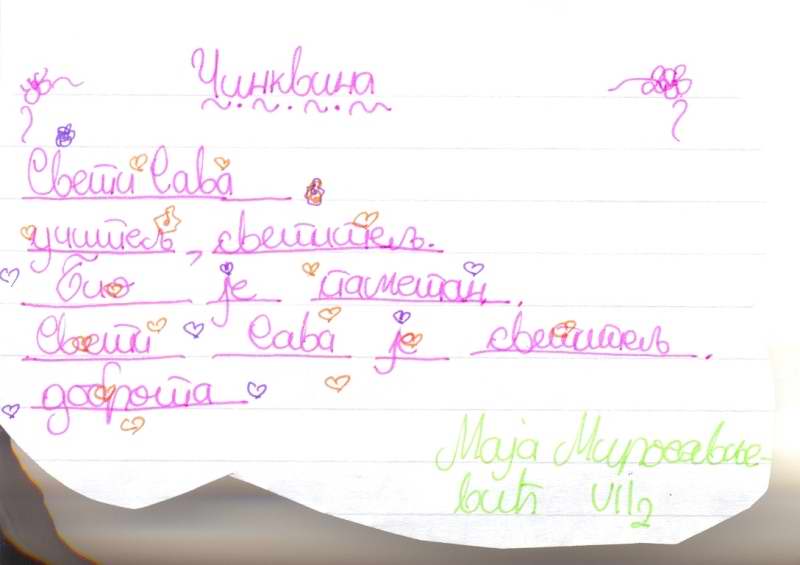 Чинквина
Свети Сава
учитељ, светитељ.
Био је паметан.
Свети Сава је светитељ.
доброта
Маја Миросавље-
вић VII2